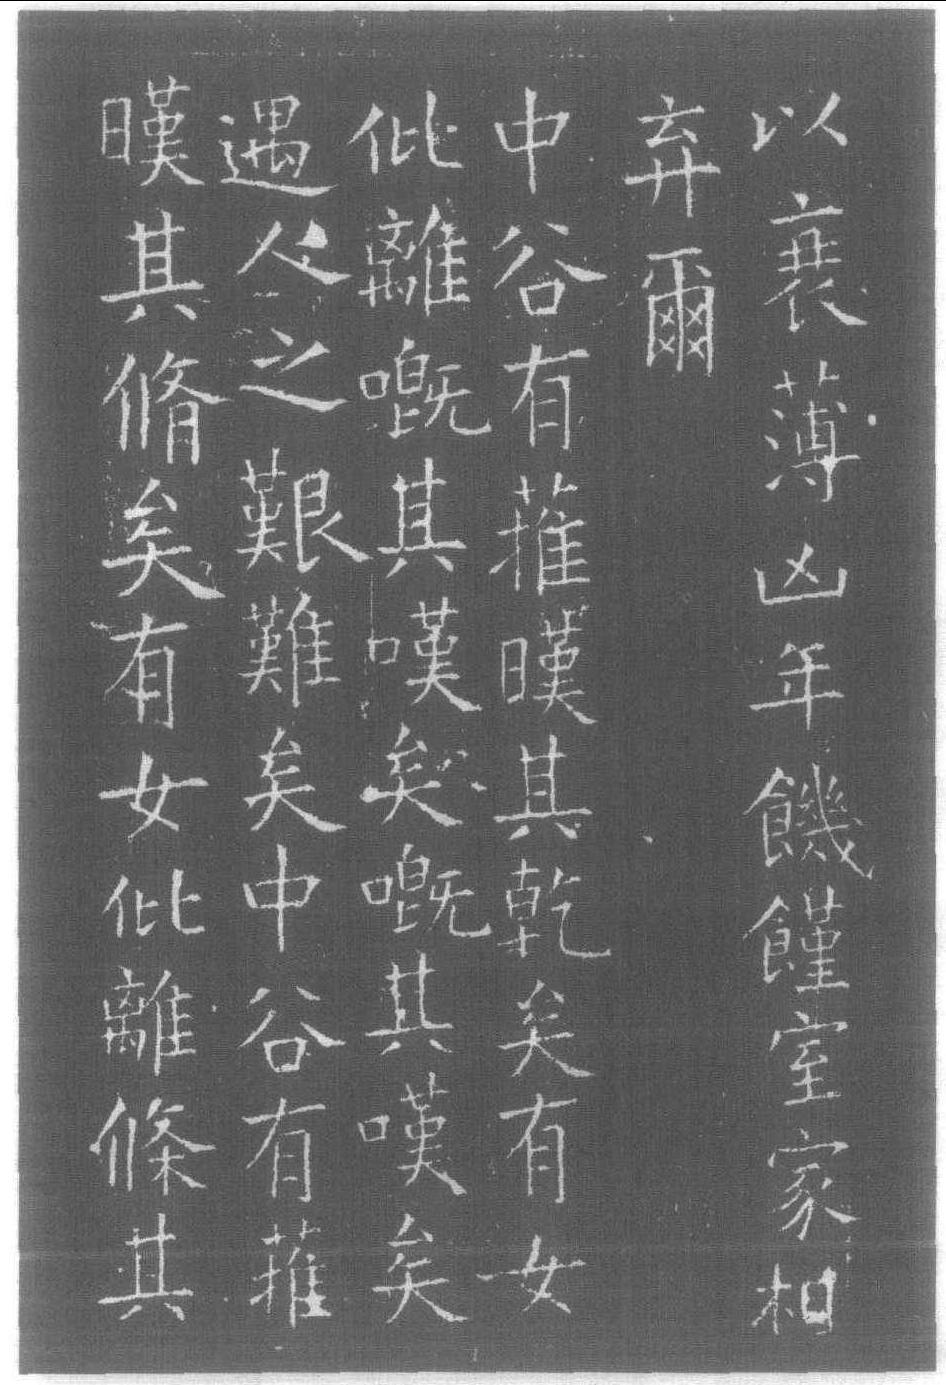 以衰薄凶年饑饉室家相
弃爾
中谷有蓷暵其乾矣有女
仳離嘅其嘆矣嘅其嘆矣
遇人之艱難矣中谷有蓷
暵其脩矣有女仳離條其